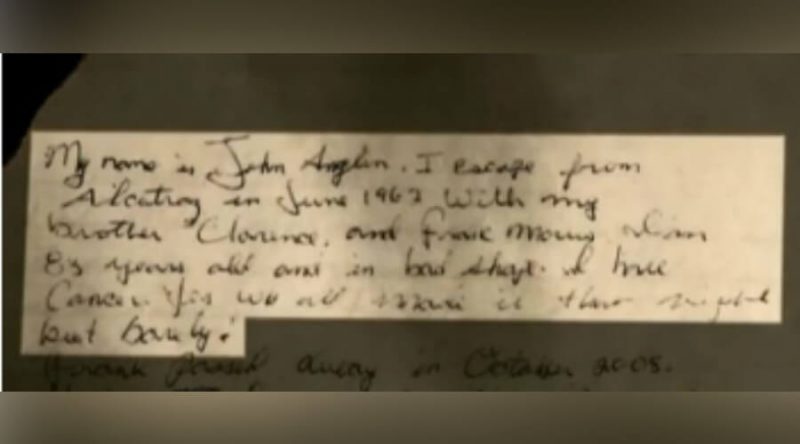 My name is John Anglin. I escape from
Alcatraz in June 1962 with my
brother Clarence, and Frank Morris. I'm
83 years old and in bad shape. I have
Cancer. Yes we all made it that night
but barely!
Frank passed away in October 2008.